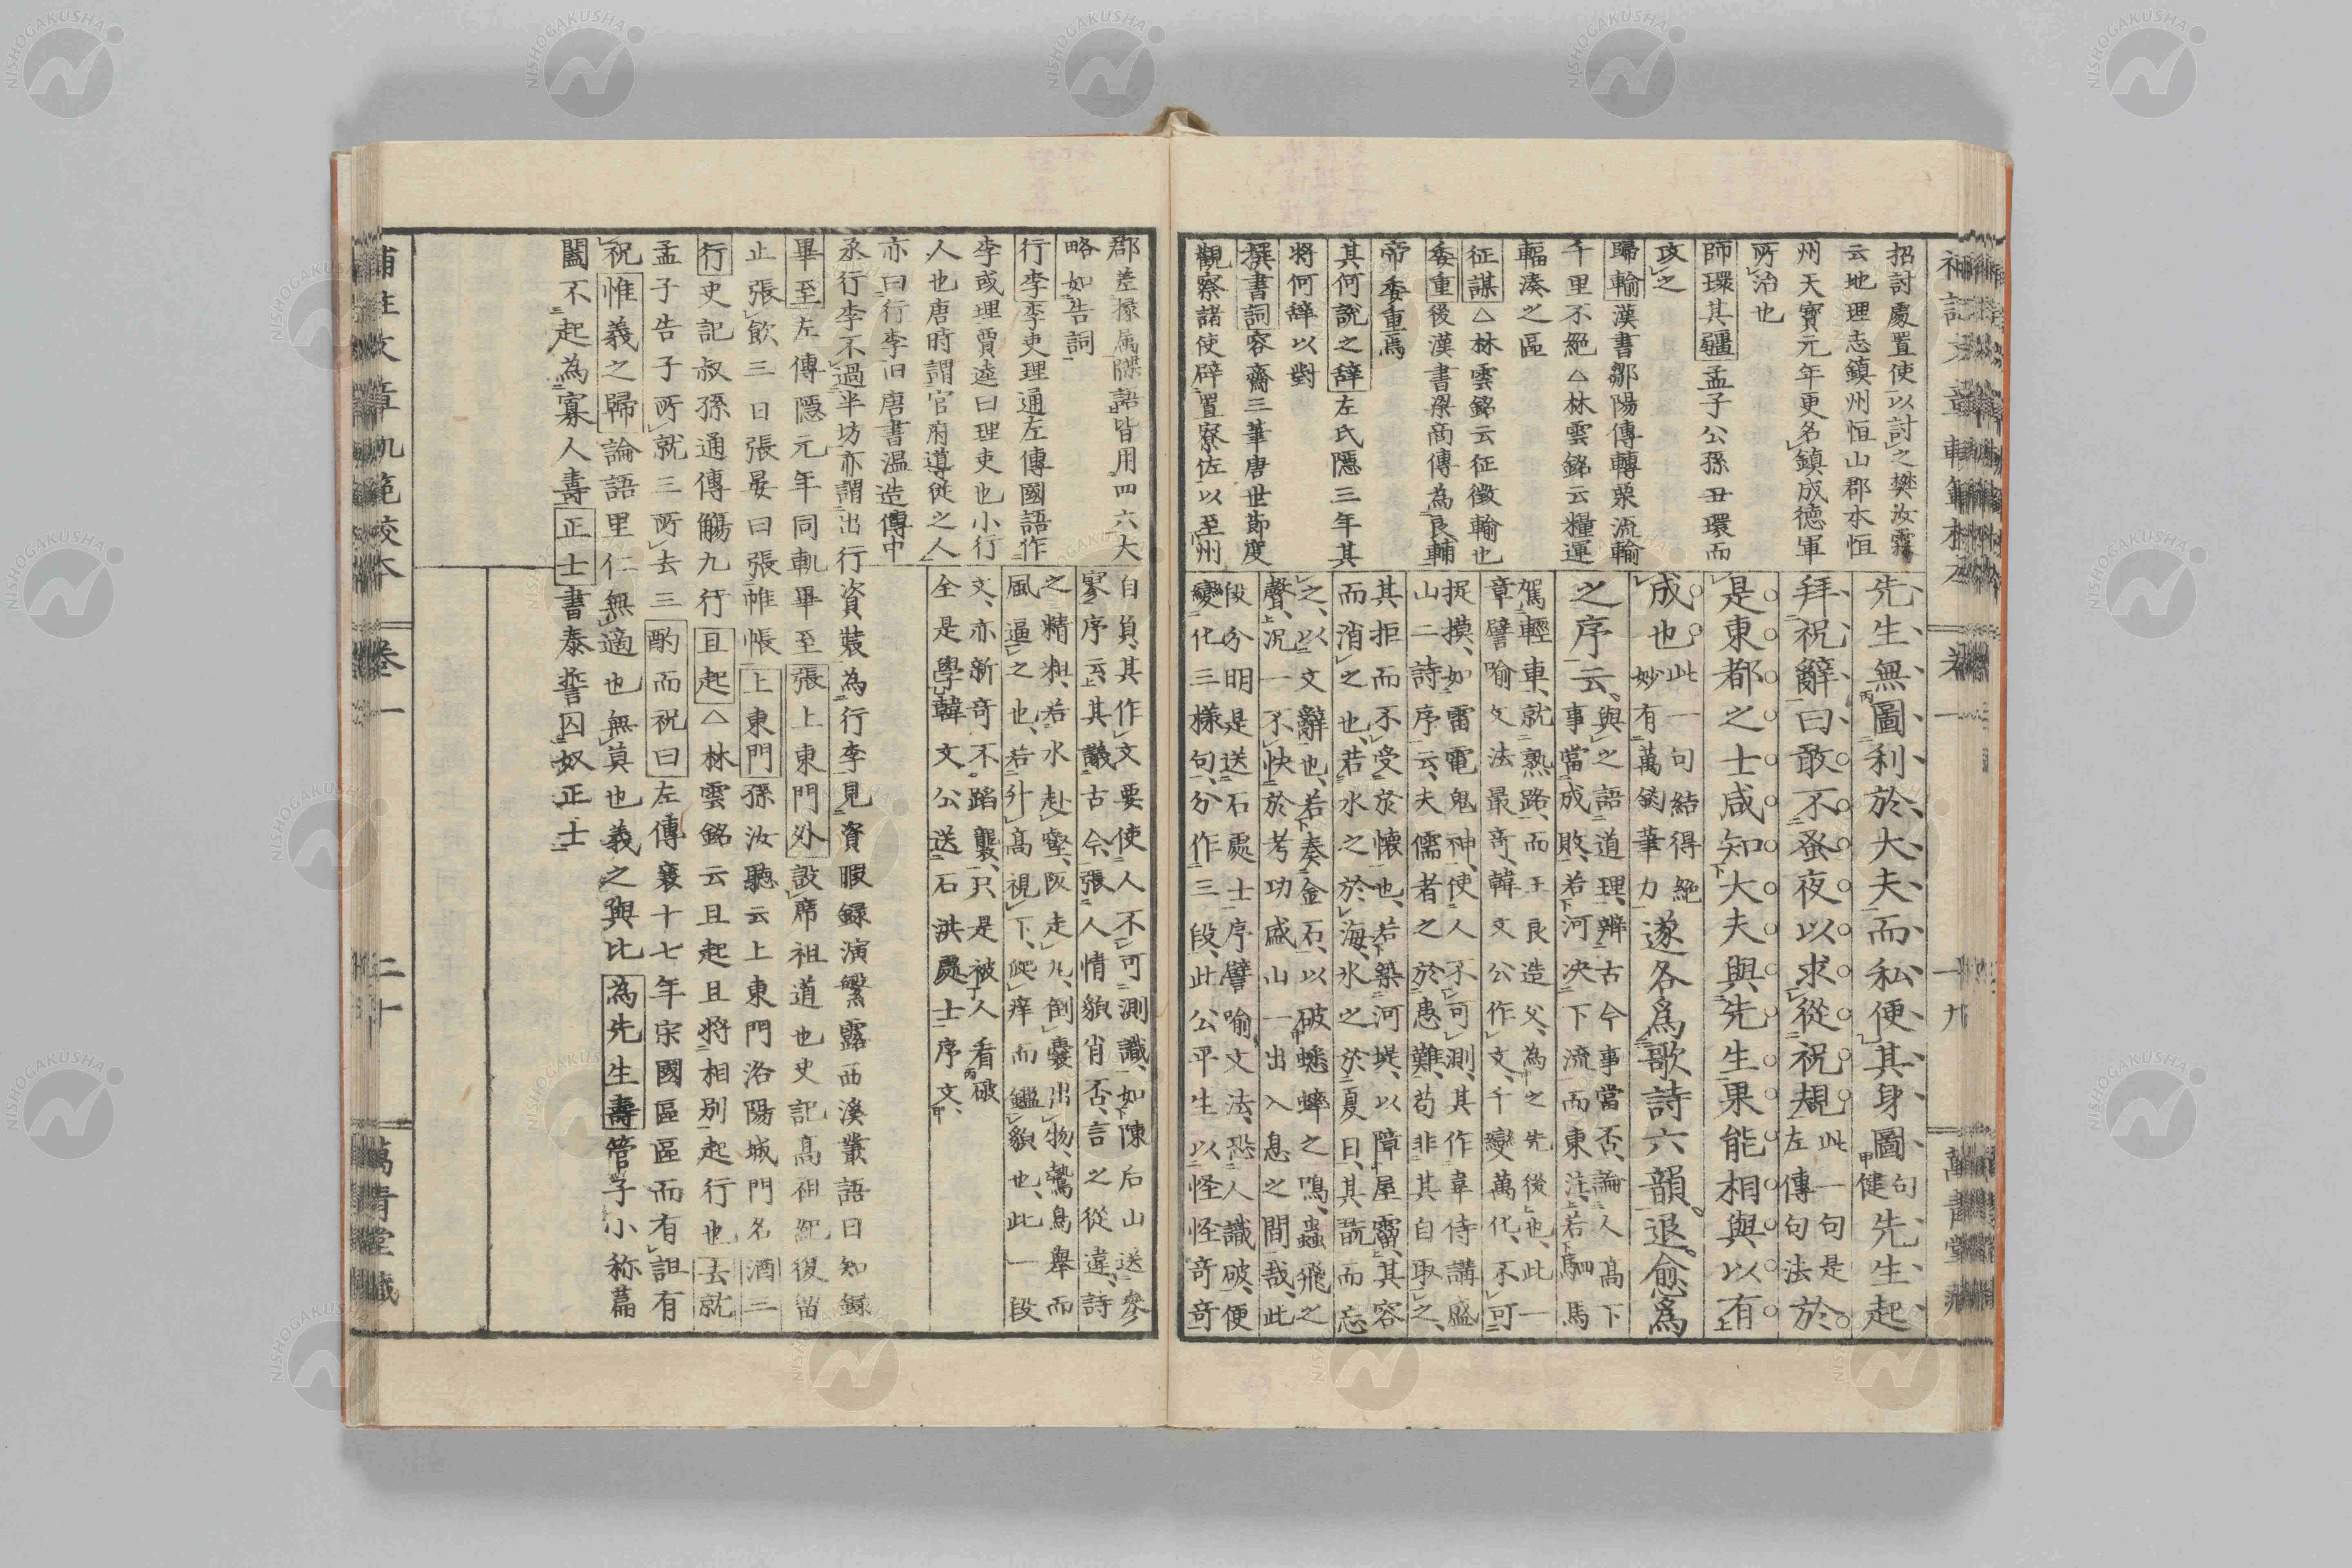 補註文章軌範校本 卷一 十九 萬青堂藏
招討處置使以討之樊汝霖
云地理志鎮州恒山郡本恒
州天寶元年更名鎮成德軍
所治也
師環其疆孟子公孫丑環而
攻之
歸輸漢書鄒陽傳轉粟流輸
千里不絕△林雲銘云糧運
輻湊之區
征謀△林雲銘云征徵輸也
委重後漢書梁商傳為良輔
帝委重焉
其何說之辭左氏隱三年其
將何辭以對
撰書詞容齋三筆唐世節度
觀察諸使辟置寮佐以至州
先生無圖利於大夫而私便其身圖句健先生起
拜祝辭曰敢不蚤夜以求從祝規此一句是左傳句法於
是東都之士咸知大夫與先生果能相與以有
成也此一句結得絕妙有萬鈞筆力遂各爲歌詩六韻退愈爲
之序云與之語道理辨古今事當否論人高下事當成敗若河決下流而東注若駟馬
駕輕車就熟路而王良造父為之先後也此一章譬喻文法最奇韓文公作文千變萬化不可
捉摸如雷電鬼神使人不可測其作韋侍講盛山二詩序云夫儒者之於患難苟非其自取之
其拒而不受於懷也若築河堤以障屋霤其容而消之也若水之於海冰之於夏日其翫而忘
之以文辭也若奏金石以破蟋蟀之鳴蟲飛之聲況一不快於考功盛山一出入息之間哉此
段分明是送石處士序譬喻文法恐人識破便變化三樣句分作三段此公平生以怪怪奇奇
郡差掾属牒語皆用四六大
略如告詞
行李李吏理通左傳國語作
李或理賈逵曰理吏也小行
人也唐時謂官府導從之人
亦曰行李旧唐書温造傳中
丞行李不過半坊亦謂出行資裝為行李見資暇録演繁露西溪叢語日知録
畢至左傳隱元年同軌畢至張上東門外設席祖道也史記高祖紀復留
止張飲三日張晏曰張帷帳上東門孫汝聽云上東門洛陽城門名酒三
行史記叔孫通傳觴九行且起△林雲銘云且起且將相別起行也去就
孟子告子所就三所去三酌而祝曰左傳襄十七年宋國區區而有詛有
祝惟義之歸論語里仁無適也無莫也義之與比為先生壽管子小称篇
闔不起為寡人壽正士書泰誓囚奴正士
自負其作文要使人不可測識如陳后山送參
寥序云其議古今張人情貌肖否言之從違詩
之精粗若水赴壑阪走丸倒囊出物鷙鳥舉而
風逼之也若升高視下爬痒而鑑貌也此一段
文亦新奇不蹈襲只是被人看破
全是學韓文公送石洪處士序文
補註文章軌範校本 卷一 二十 萬青堂藏
NISHOGAKUSHA